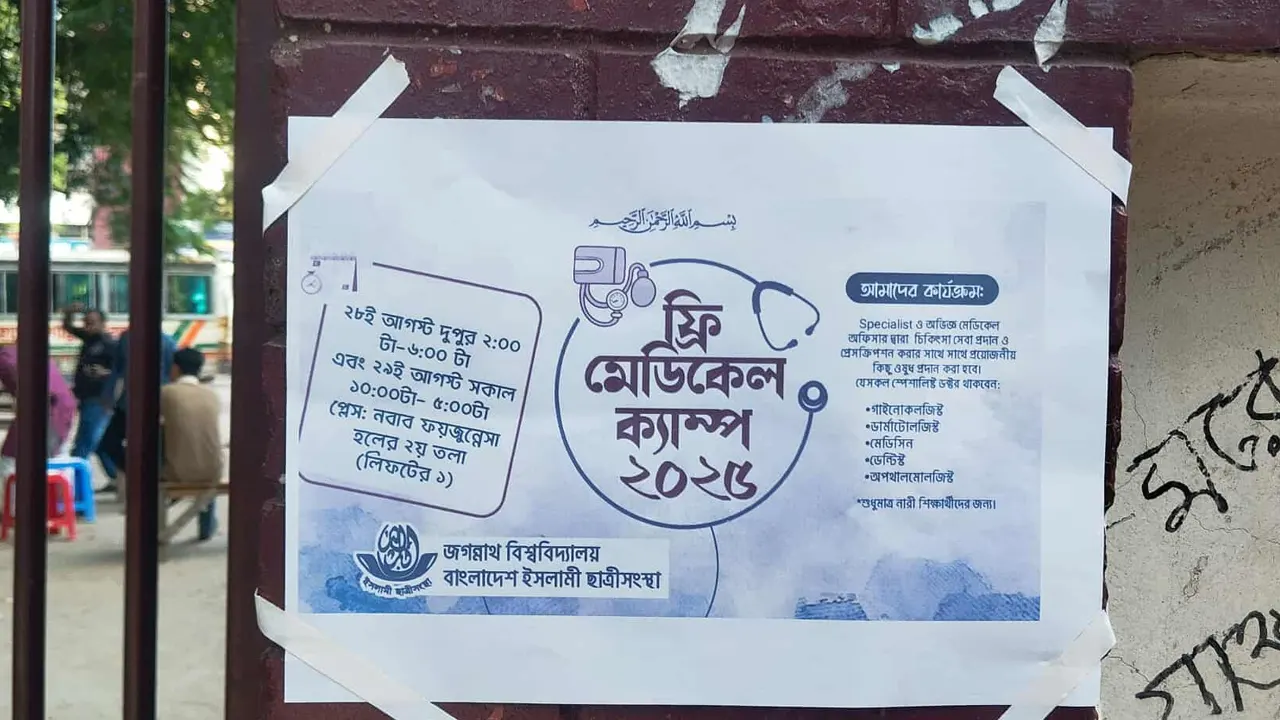 بسم الله الرحمن الرحيم
২৮ই আগস্ট দুপুর ২:০০
টা-৬:০০ টা
এবং ২৯ই আগস্ট সকাল
১০:০০টা- ৫:০০টা
প্লেস: নবাব ফয়জুন্নেসা
হলের ২য় তলা
(লিফটের ১)
ফ্রি
মেডিকেল
ক্যাম্প
২০২৫
আমাদের কার্যক্রম:
Specialist ও অভিজ্ঞ মেডিকেল
অফিসার দ্বারা চিকিৎসা সেবা প্রদান ও
প্রেসক্রিপশন করার সাথে সাথে প্রয়োজনীয়
কিছু ওষুধ প্রদান করা হবে।
যেসকল স্পেশালিস্ট ডক্টর থাকবেন:
•গাইনোকলজিস্ট
•ডার্মাটোলজিস্ট
•মেডিসিন
•ডেন্টিস্ট
•অপথালমোলজিস্ট
*শুধুমাত্র নারী শিক্ষার্থীদের জন্য।
ইসলামী ছাত্রীসংস্থা
জগন্নাথ বিশ্ববিদ্যালয়
বাংলাদেশ ইসলামী ছাত্রীসংস্থা